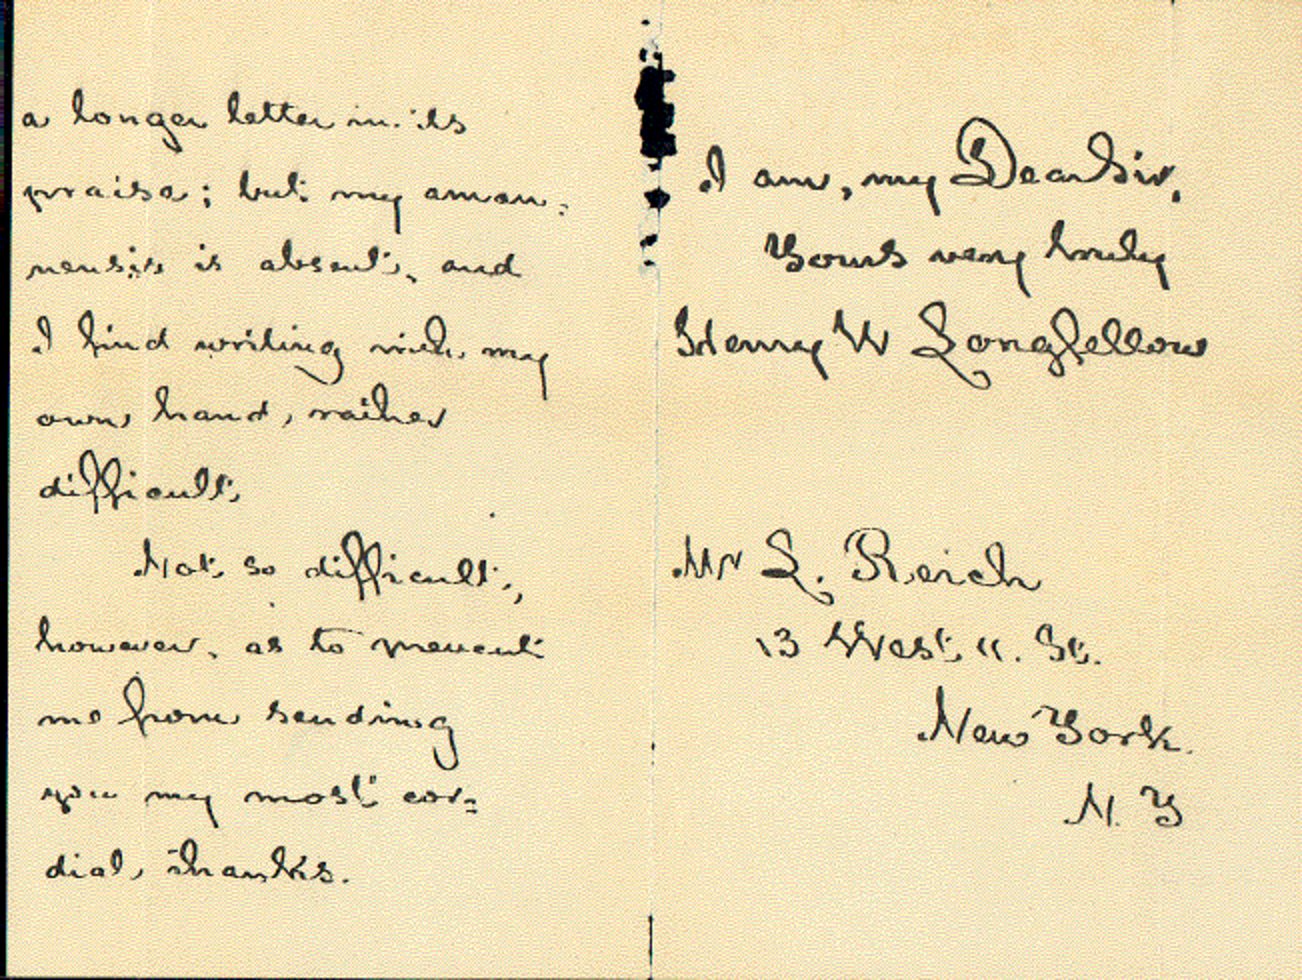 a longer letter in its
praise; but my aman=
uensis is absent, and
I find writing with my
own hand, rather
difficult.
Not so difficult,
however, as to prevent
me from sending
you my most cor=
dial thanks.
I am, my Dear Sir,
Yours very truly
Henry W Longfellow
Mr L. Reich
13 West 11. St.
New York.
N. Y